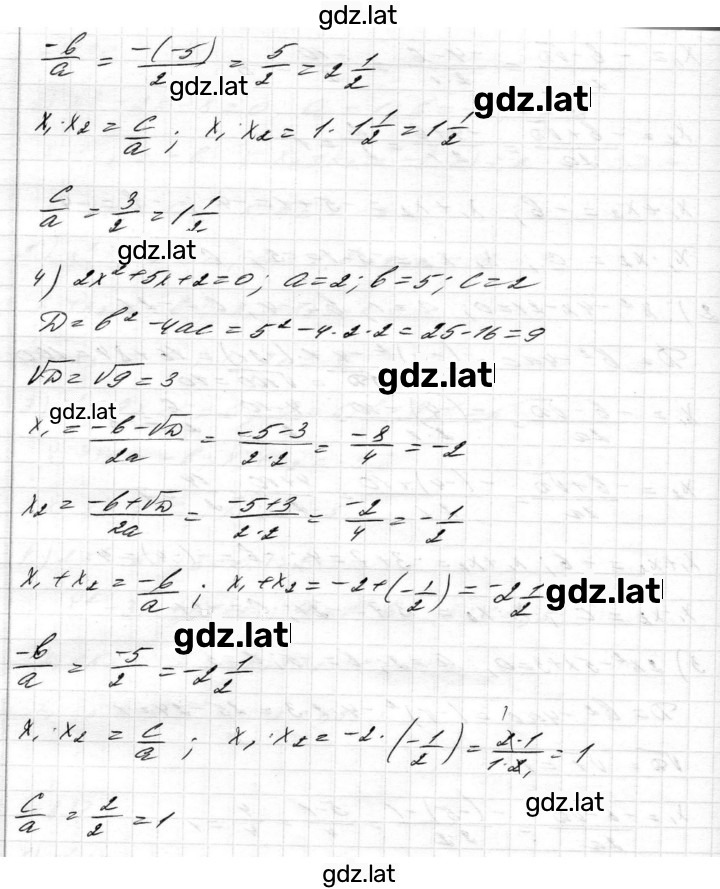 gdz.lat
-b/a = -(-5)/2 = 5/2 = 2 1/2
gdz.lat
gdz.lat
x₁·x₂ = c/a ; x₁·x₂ = 1·1 1/2 = 1 1/2
c/a = 3/2 = 1 1/2
gdz.lat
4) 2x²+5x+2=0; a=2; b=5; c=2
D = b²-4ac = 5²-4·2·2 = 25-16 = 9
√D = √9 = 3
gdz.lat
gdz.lat
x₁ = (-b-√D)/2a = (-5-3)/(2·2) = -8/4 = -2
x₂ = (-b+√D)/2a = (-5+3)/(2·2) = -2/4 = -1/2
x₁+x₂ = -b/a ; x₁+x₂ = -2+(-1/2) = -2 1/2
gdz.lat
gdz.lat
-b/a = -5/2 = -2 1/2
x₁·x₂ = c/a ; x₁·x₂ = -2·(-1/2) = (2·1)/(1·2) = 1
gdz.lat
c/a = 2/2 = 1
gdz.lat